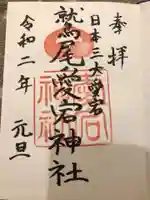 奉拝
日本三大愛宕
鷲尾愛宕神社
令和二年 元旦